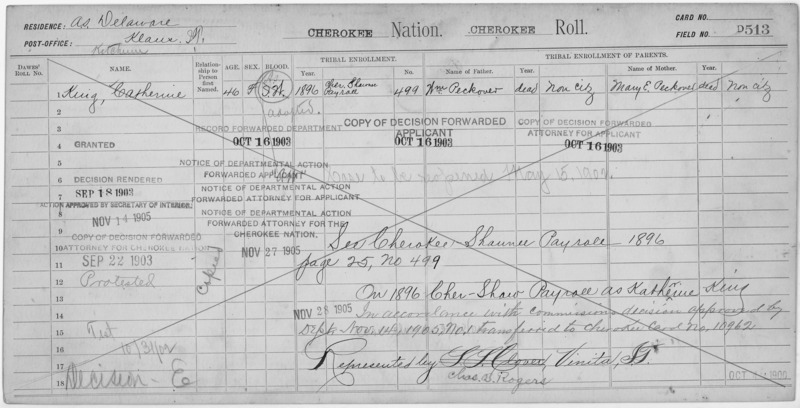 RESIDENCE: as Delaware
POST-OFFICE: I.T.
Ketchum
CHEROKEE Nation. CHEROKEE Roll.
CARD NO.
FIELD NO. D513
DAWES' ROLL NO. NAME. Relationship to Person first Named. AGE. SEX. BLOOD. TRIBAL ENROLLMENT. Year. No. TRIBAL ENROLLMENT OF PARENTS. Name of Father. Year. District. Name of Mother. Year. District.
1 King, Catherine 46 F 1896 Cher. Shawnee Payroll 499 Wm Peckover dead Non Citz Mary E. Peckover dead Non Citz
2 adopted.
3 RECORD FORWARDED DEPARTMENT COPY OF DECISION FORWARDED APPLICANT COPY OF DECISION FORWARDED ATTORNEY FOR APPLICANT
4 GRANTED OCT 16 1903 OCT 16 1903 OCT 16 1903
5 NOTICE OF DEPARTMENTAL ACTION
6 DECISION RENDERED FORWARDED APPLICANT Case to be May 15, 1902.
7 SEP 18 1903 NOTICE OF DEPARTMENTAL ACTION
ACTION APPROVED BY SECRETARY OF INTERIOR. FORWARDED ATTORNEY FOR APPLICANT.
8 NOV 14 1905 NOTICE OF DEPARTMENTAL ACTION
FORWARDED ATTORNEY FOR THE
9 COPY OF DECISION FORWARDED CHEROKEE NATION. See Cherokee-Shawnee Payroll 1896
10 ATTORNEY FOR CHEROKEE NATION NOV 27 1905
11 SEP 22 1903 page 25, No 499
12 Protested Copied
13 On 1896 Cher-Shaw Payroll as Katherine King
14 NOV 28 1905 In accordance with commission's decision approved by
15 Test Dept. Nov. 14, 1905 No.1 transferred to Cherokee Card No. 10962
16 10/31/02
17 Represented by Vinita, I.T.
18 Decision - E Chas. B. Rogers